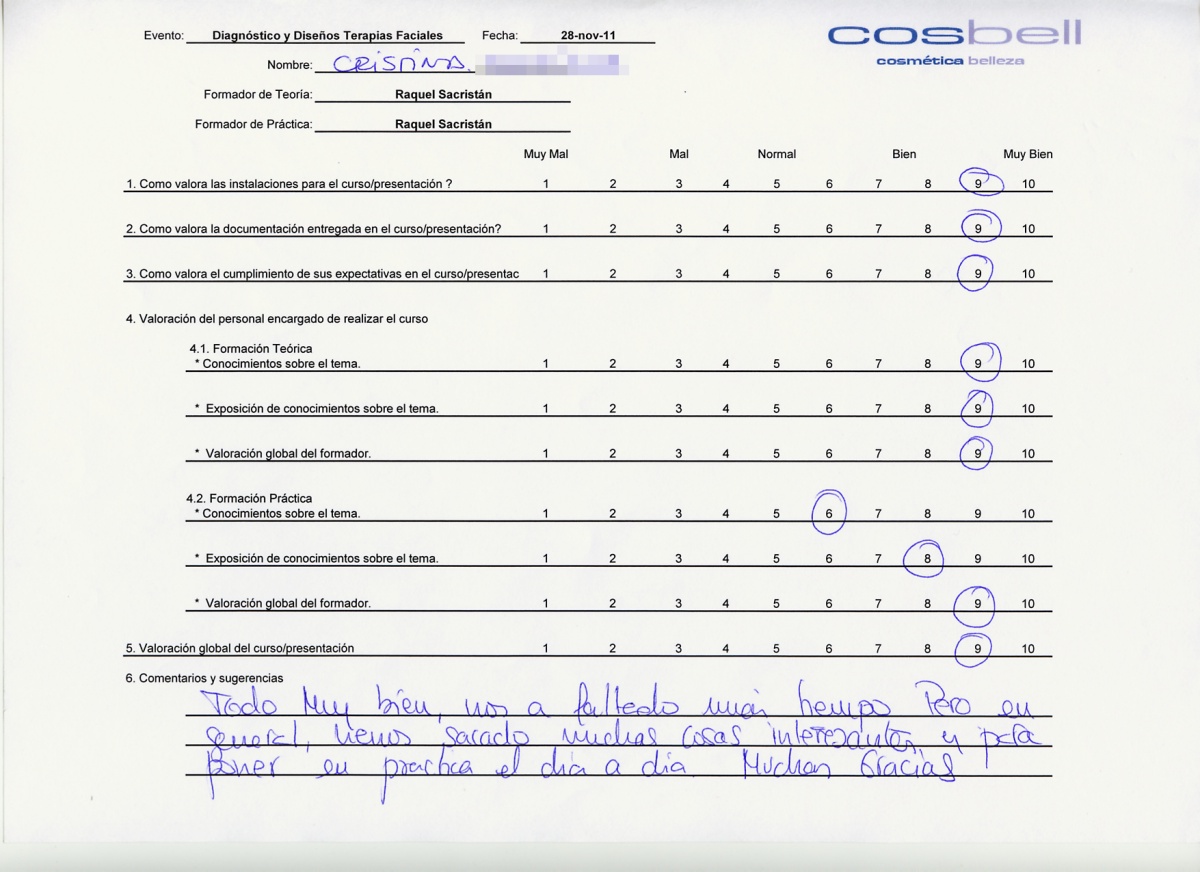 Evento: Diagnóstico y Diseños Terapias Faciales Fecha: 28-nov-11
cosbell
cosmética belleza
Nombre: CRISTINA
Formador de Teoría: Raquel Sacristán
Formador de Práctica: Raquel Sacristán
Muy Mal Mal Normal Bien Muy Bien
1. Como valora las instalaciones para el curso/presentación ? 1 2 3 4 5 6 7 8 9 10
2. Como valora la documentación entregada en el curso/presentación? 1 2 3 4 5 6 7 8 9 10
3. Como valora el cumplimiento de sus expectativas en el curso/presentac 1 2 3 4 5 6 7 8 9 10
4. Valoración del personal encargado de realizar el curso
4.1. Formación Teórica
* Conocimientos sobre el tema. 1 2 3 4 5 6 7 8 9 10
* Exposición de conocimientos sobre el tema. 1 2 3 4 5 6 7 8 9 10
* Valoración global del formador. 1 2 3 4 5 6 7 8 9 10
4.2. Formación Práctica
* Conocimientos sobre el tema. 1 2 3 4 5 6 7 8 9 10
* Exposición de conocimientos sobre el tema. 1 2 3 4 5 6 7 8 9 10
* Valoración global del formador. 1 2 3 4 5 6 7 8 9 10
5. Valoración global del curso/presentación 1 2 3 4 5 6 7 8 9 10
6. Comentarios y sugerencias
Todo Muy bien, nos a faltado tiempo Pero en
general, hemos sacado muchas cosas interesantes, y para
poner en practica el día a día Muchas Gracias